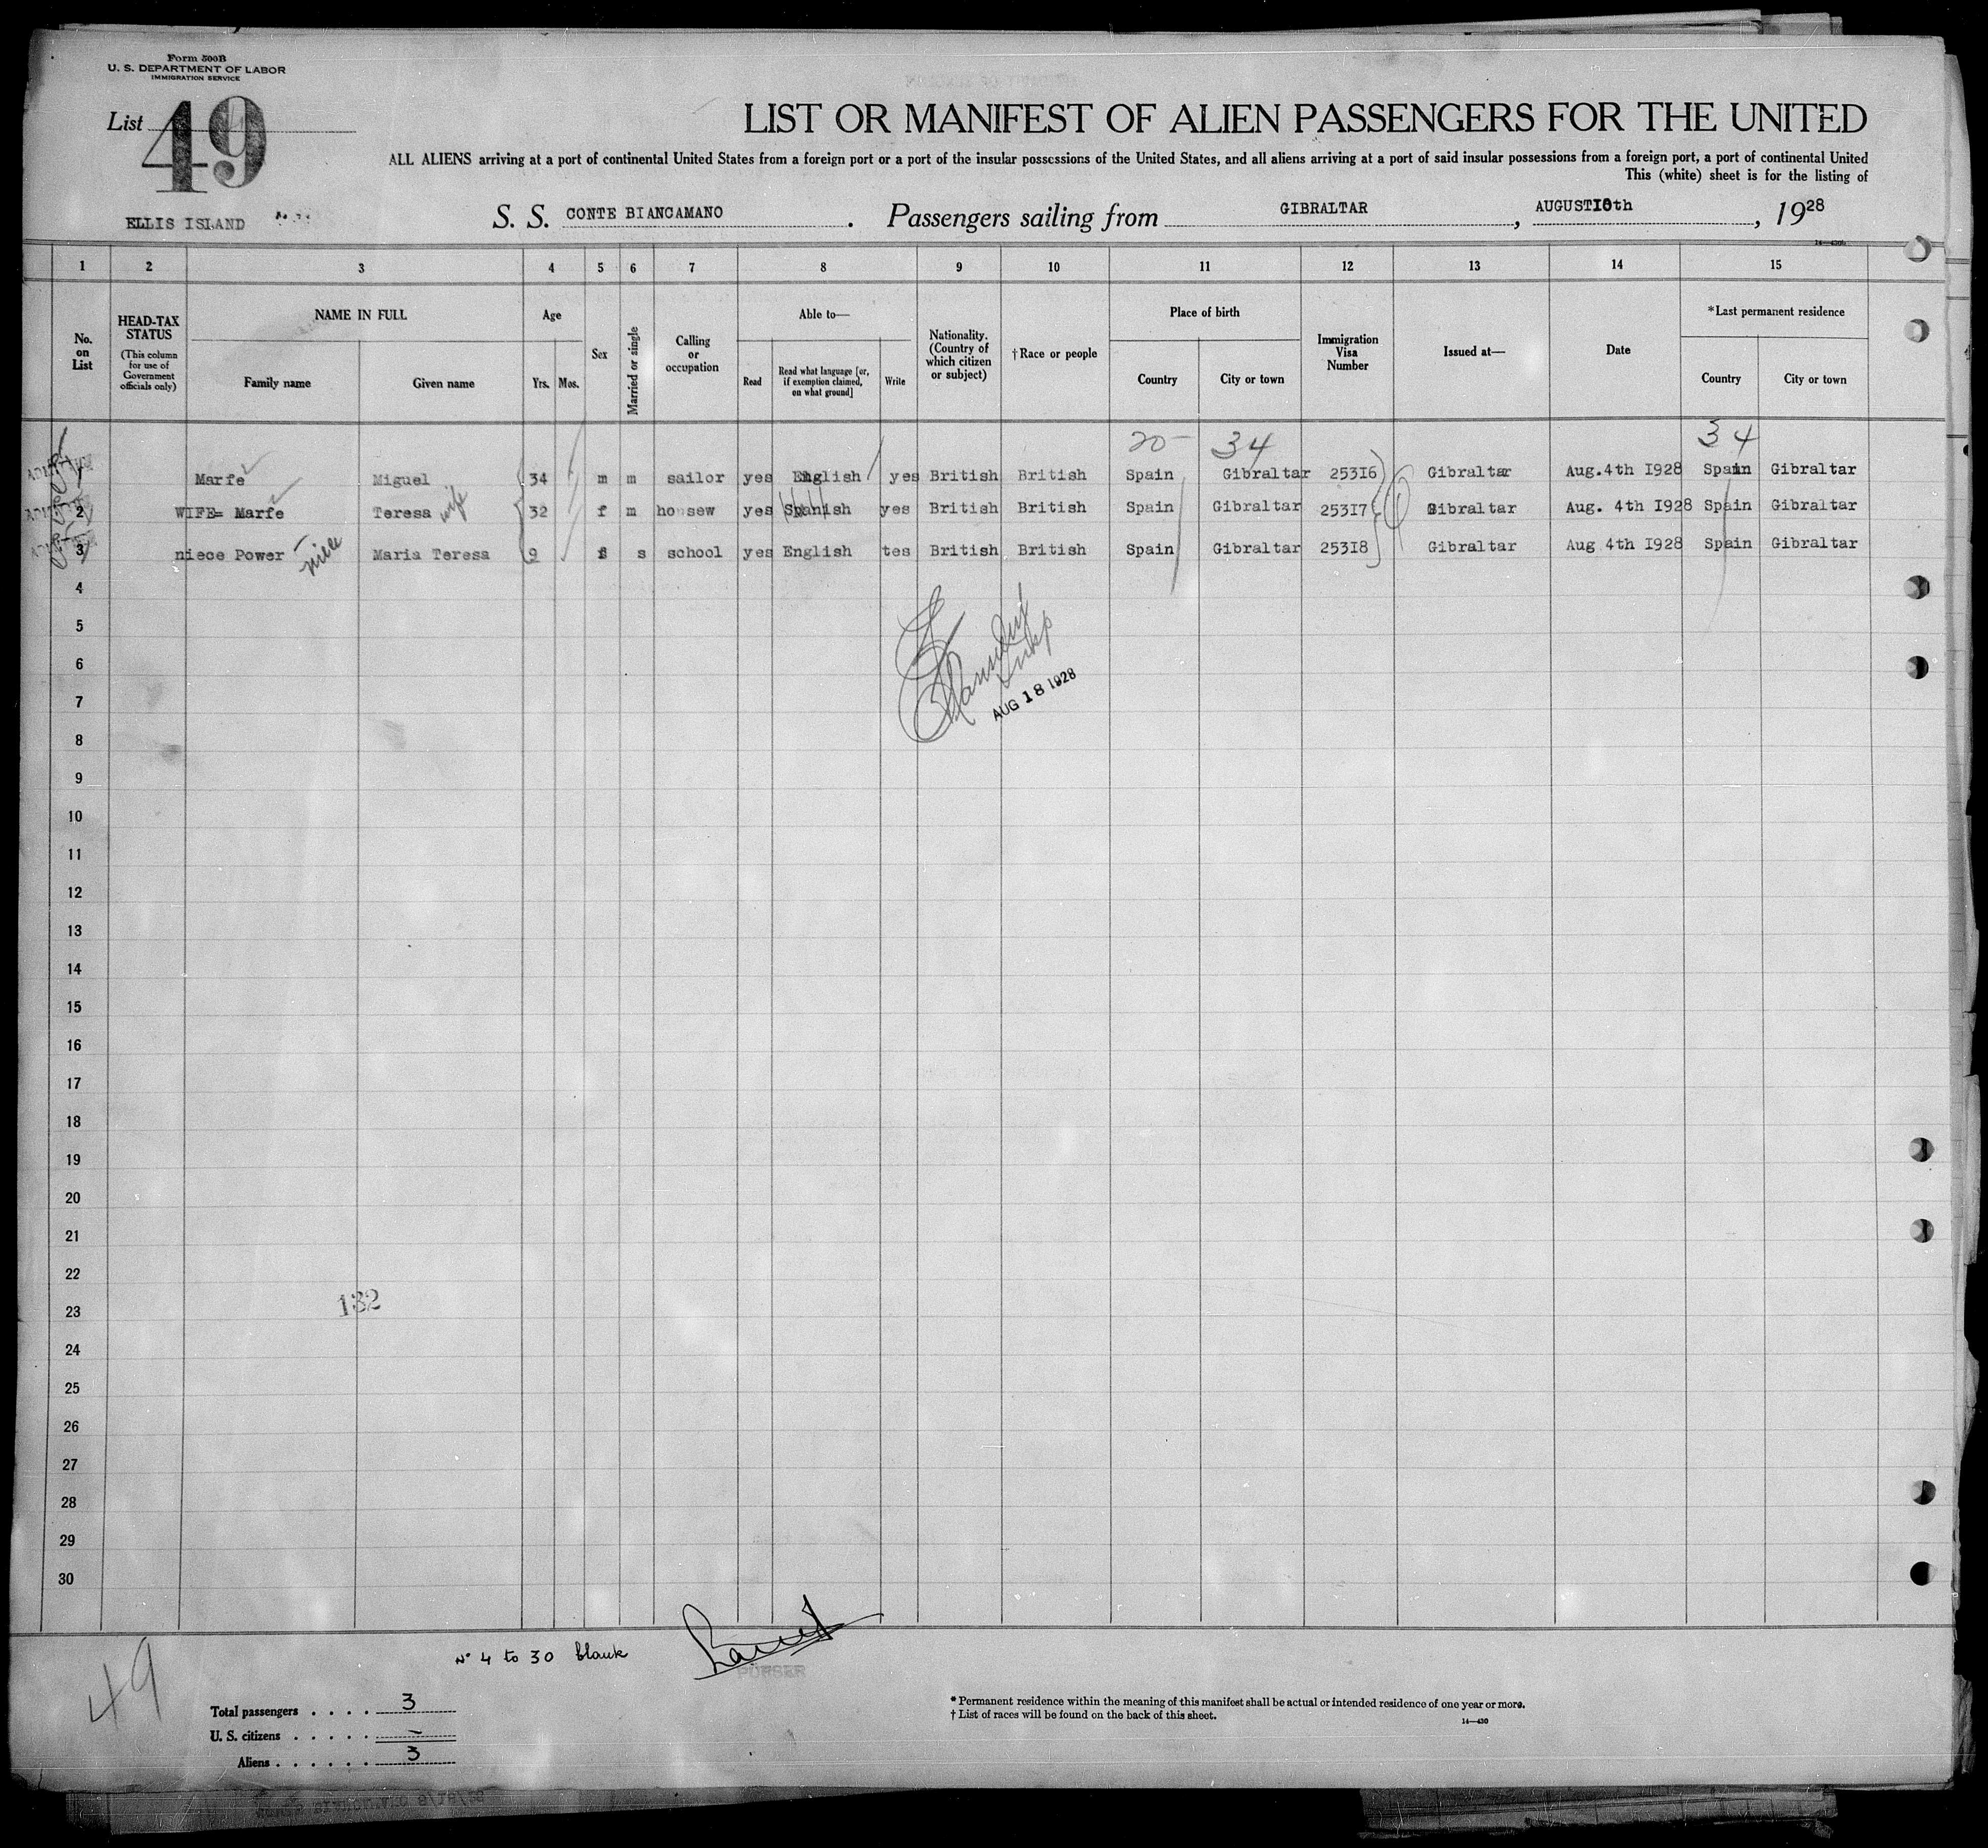 Form 500B
U. S. DEPARTMENT OF LABOR
IMMIGRATION SERVICE
List 49
LIST OR MANIFEST OF ALIEN PASSENGERS FOR THE UNITED
ALL ALIENS arriving at a port of continental United States from a foreign port or a port of the insular possessions of the United States, and all aliens arriving at a port of said insular possessions from a foreign port, a port of continental United
This (white) sheet is for the listing of
ELLIS ISLAND
S. S. CONTE BIANCAMANO. Passengers sailing from GIBRALTAR, AUGUST I0th, 1928
1 2 3 4 5 6 7 8 9 10 11 12 13 14 15
No. on List
HEAD-TAX STATUS (This column for use of Government officials only)
NAME IN FULL
Family name
Given name
Age
Yrs. Mos.
Sex
Married or single
Calling or occupation
Able to—
Read
Read what language [or, if exemption claimed, on what ground]
Write
Nationality. (Country of which citizen or subject)
†Race or people
Place of birth
Country
City or town
Immigration Visa Number
Issued at—
Date
*Last permanent residence
Country
City or town
20 34 34
1 Marfe Miguel 34 m m sailor yes English yes British British Spain Gibraltar 253I6 Gibraltar Aug.4th I928 Spain Gibraltar
2 WIFE= Marfe Teresa wife 32 f m housew yes Spanish yes British British Spain Gibraltar 253I7 Gibraltar Aug. 4th I928 Spain Gibraltar
3 niece Power niece Maria Teresa 9 f s school yes English tes British British Spain Gibraltar 253I8 Gibraltar Aug 4th I928 Spain Gibraltar
4
5
6
7
AUG 18 1928
8
9
10
11
12
13
14
15
16
17
18
19
20
21
22
23
132
24
25
26
27
28
29
30
49
Nº 4 to 30 blank
PURSER
Total passengers . . . . 3
U. S. citizens . . . . . —
Aliens . . . . . . 3
* Permanent residence within the meaning of this manifest shall be actual or intended residence of one year or more.
† List of races will be found on the back of this sheet.
14—430